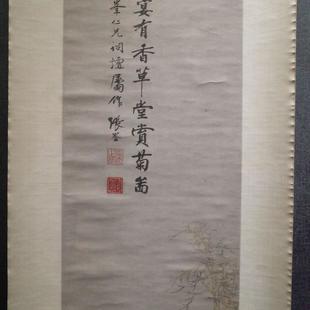 宴有香草堂賞菊圖
仁兄詞壇屬作